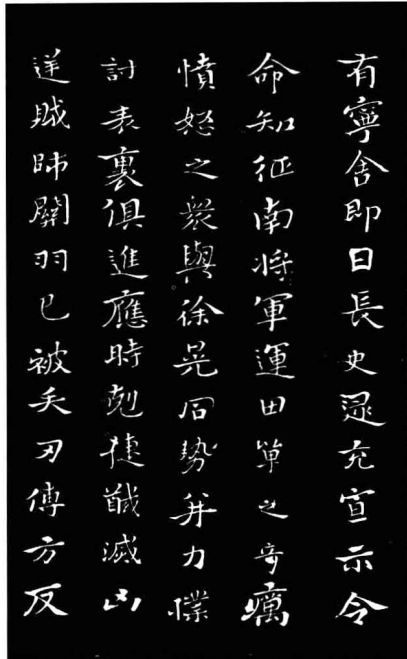 有寧舍即日長史逯充宣示令
命知征南將軍運田單之奇厲
憤怒之衆與徐晃同勢并力撲
討表裏俱進應時剋捷馘滅凶
逆賊帥關羽已被矢刃傅方反